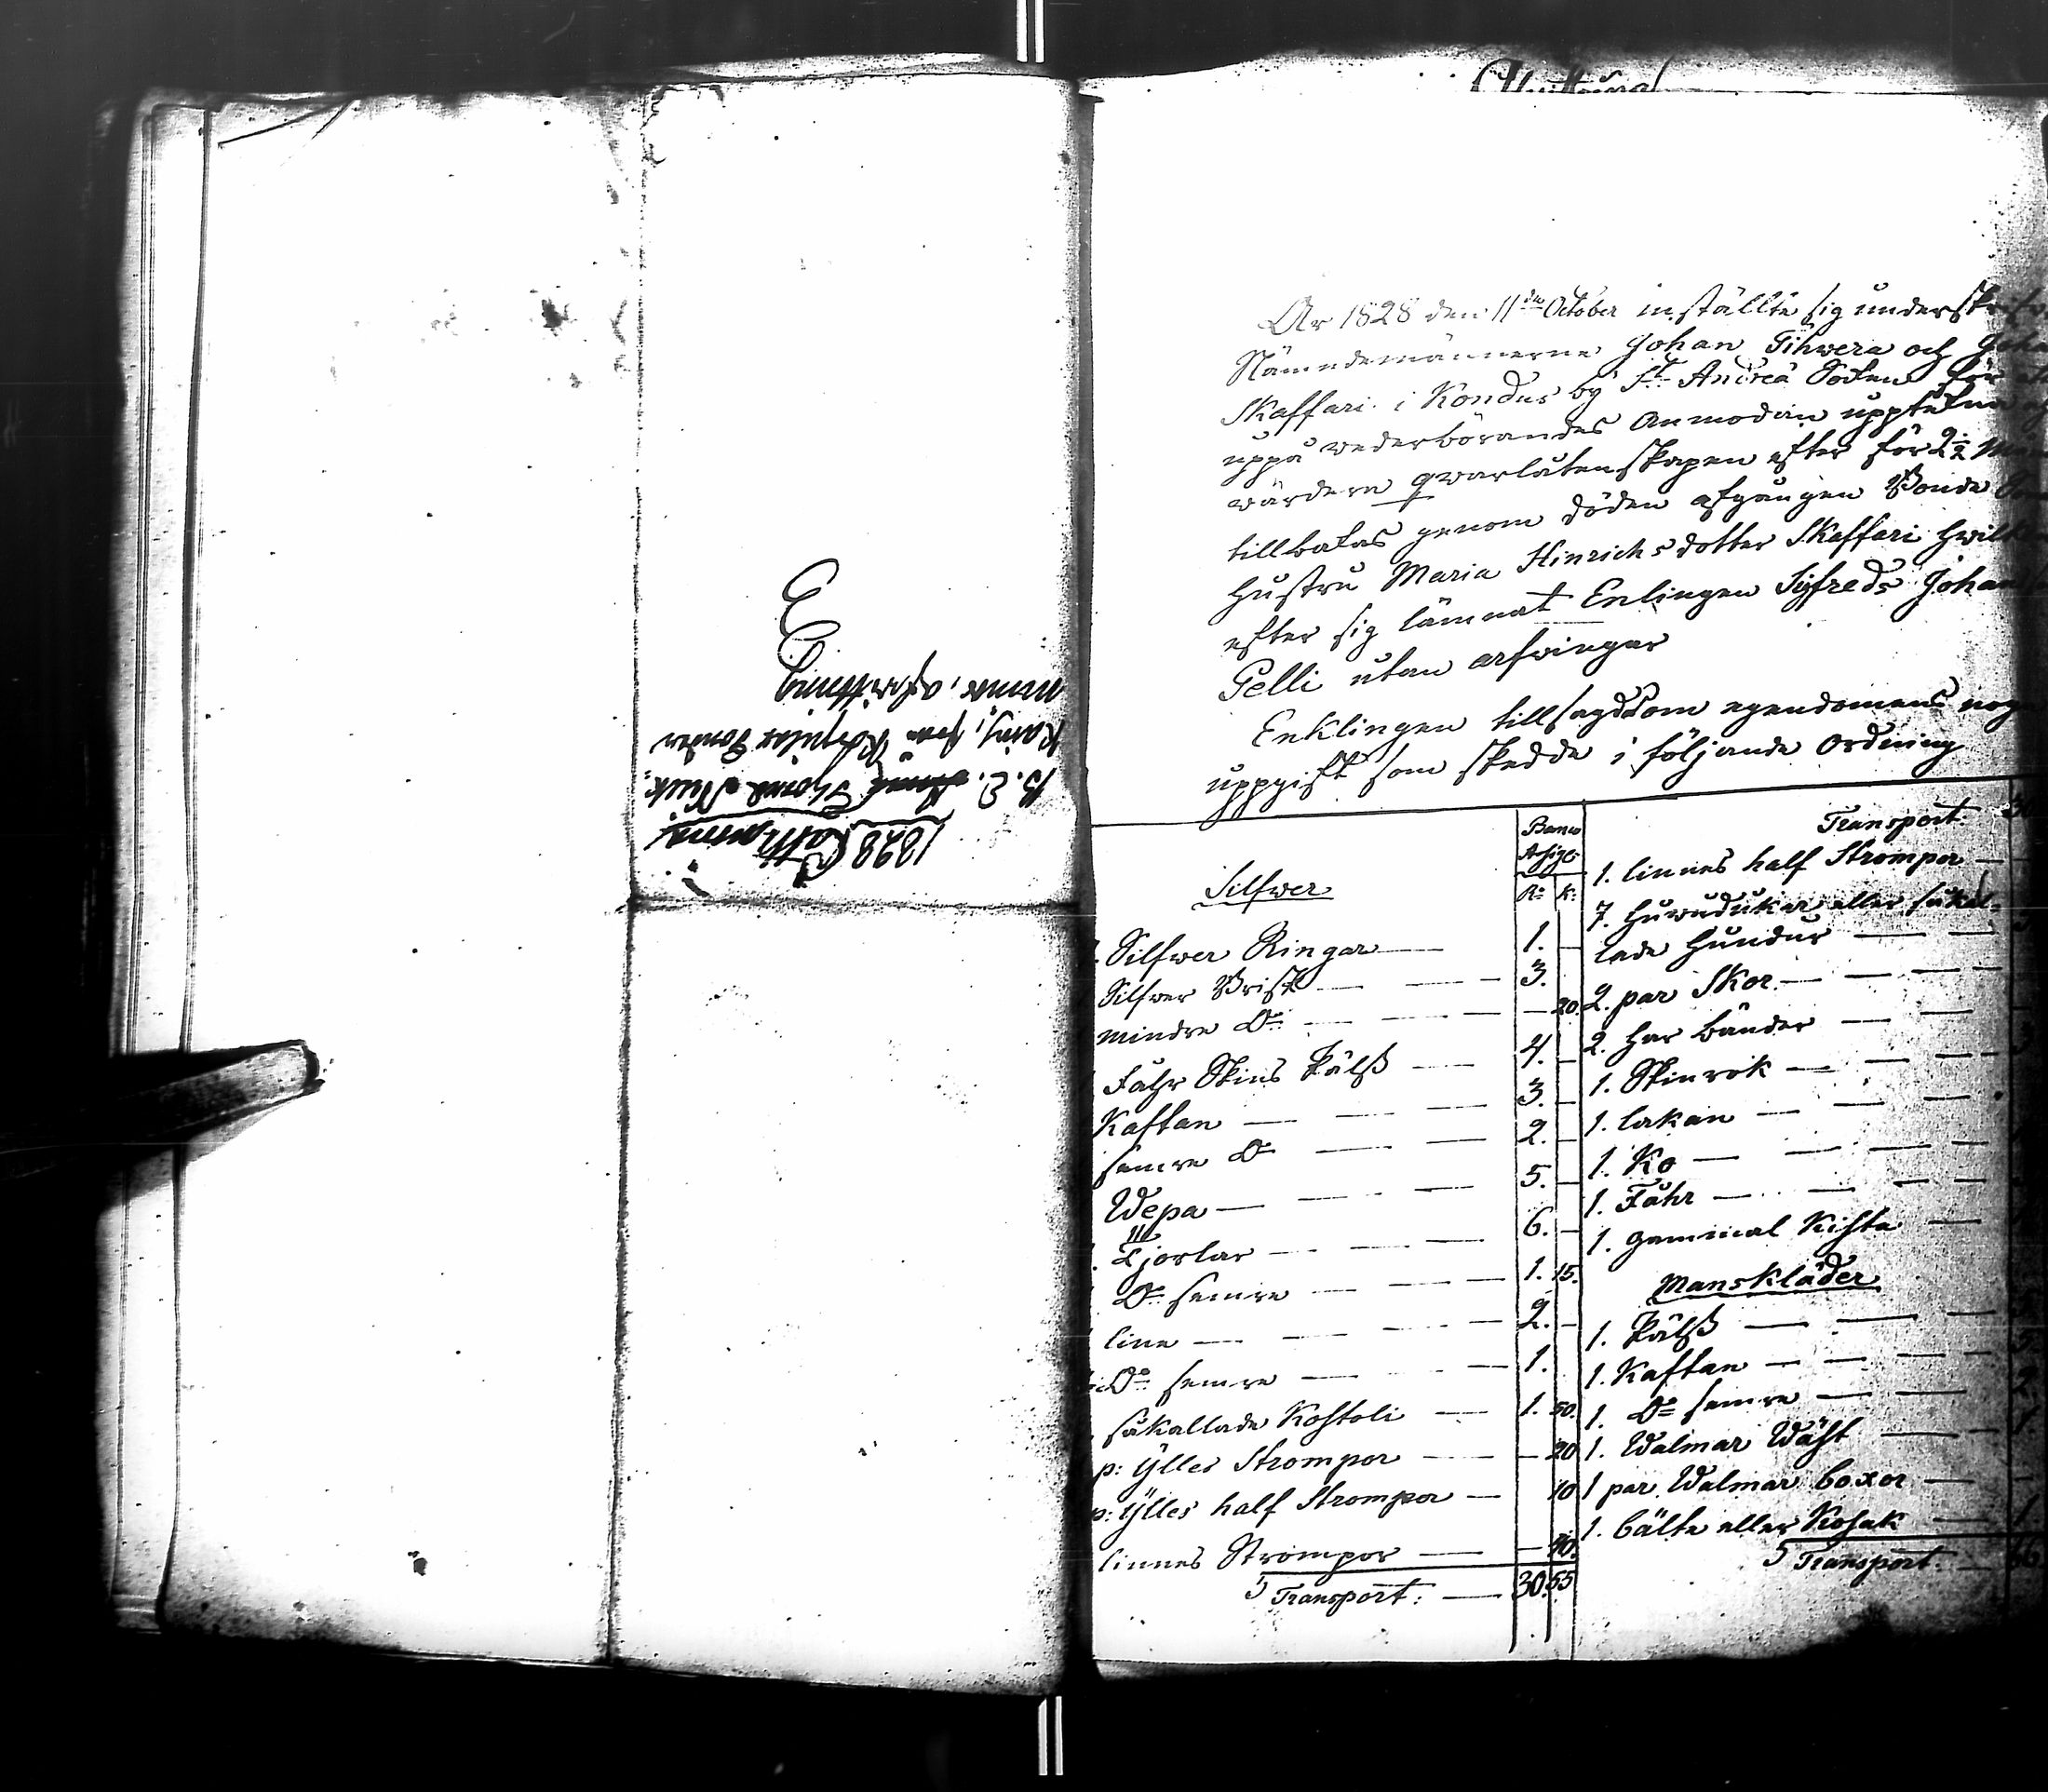 1828
B. E.
År 1828 den 11te October inställte sig underskrifv
Nämndemännerne Johan Tihwera och Joha
Skaffari i Kondus by St Andreä Soken för at
uppå wederbörandes anmodan uppteckna och
wärdera qwarlåtenskapen efter för 2 1/2 Mån
tillbakas genom döden afgången Bonde
hustru Maria Hinrichsdotter Skaffari hwilken
efter sig lämnat Enlingen Sigfreds Johan
Pelli utan arfwingar
Enklingen tillsagd om egendomens noga
uppgift som skedde i följande ordning
Banco
Assign:
Rı: K:
Silfwer
Silfwer Ringar — 1. —
Silfwer Brist — 3.
mindre Do — — 20.
Fåhr Skins Pälss — 4. —
Kaftan — 3. —
semre Do — 2. —
Wepa — 5. —
Tjortar — 6. —
Do semre — 1. 15.
line — 2. —
Do semre — 1.
såkallade Kostoli — 1. 50.
p: Ylles Strompor — — 20
p: Ylles half Strompor — 10
linnes Strompor — — 40.
Transport: — 30. 55
Transport: 30
1. linnes half Strompor —
7. huwudukar eller såkal-
lade Hundur —
2. par Skor —
2. har bänder —
1. Spinrok —
1. lakan —
1. Ko —
1. Fåhr —
1. gammal Kista —
Manskläder
1. Pälss —
1. Kaftan — 5
1. Do semre — 2.
1. Walmar Wäst — 1.
1 par Walmar boxor —
1. bälte eller Kosak — 1.
Transport: 66